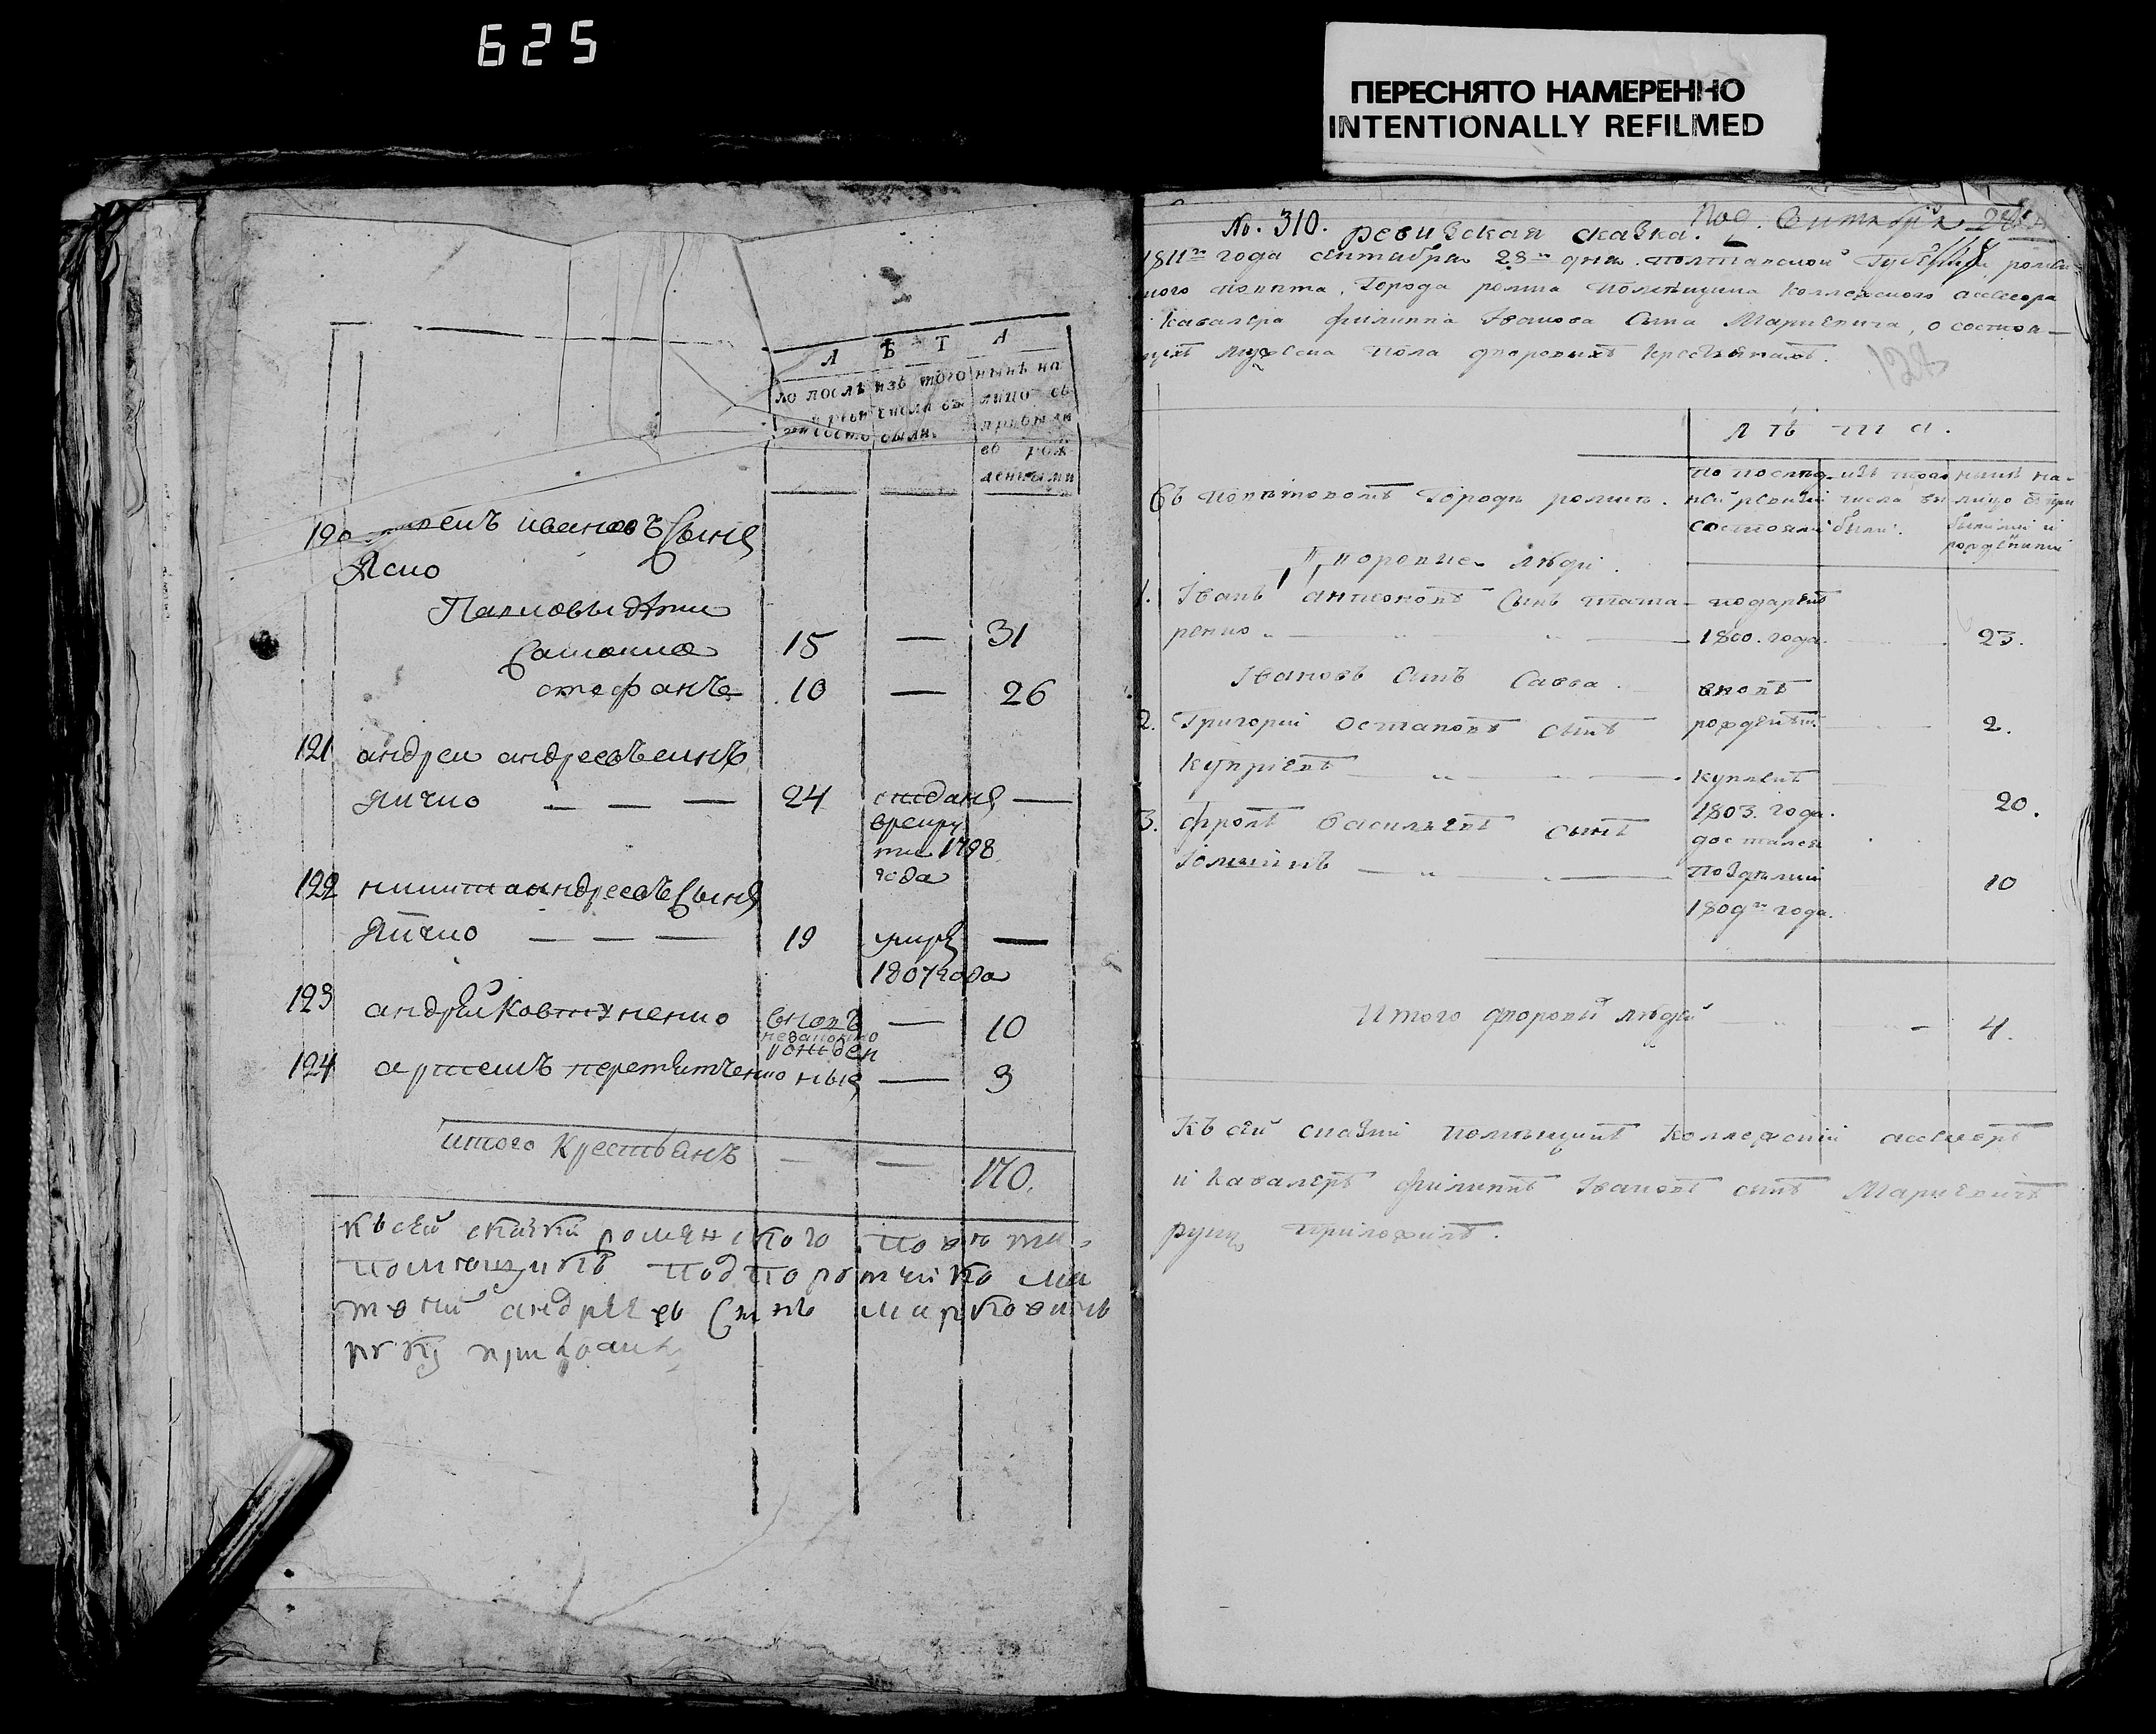 625
ПЕРЕСНЯТО НАМЕРЕННО
INTENTIONALLY REFILMED
Л Ѣ Т А
по послѣ изъ того нынѣ на
ревизіи числа вы лицо съ
состо были. прибылы
въ рож
денными
120 Ивановъ Сынъ
Ясно
Павловы дѣти
Самоило 15 — 31
стефанъ 10 — 26
121 андреи андреевъ сынъ
Личко — — — 24 отданъ —
врекру
ты 1798
года
122 никита андреевъ Сынъ
Личко — — — 19 умре —
1807 года
123 андрей Ковтуненко вновь — 10
124 артемъ рожден
ныя — 3
итого Крестьянъ — — 170.
Къ сей скаски роменского повета
помещикъ подпоручикъ ма
твей андреевъ Сынъ марковичъ
руку приложилъ
No. 310. ревизская сказка.
1811го года сентября 28го дня. полтавской Губерніи ромен
ного повѣта, города ромна Помѣщика Коллежского ассесора
Кавалера филиппа Іванова Сына Марковича, о состоя—
щихъ мужеска пола дворовыхъ крестьянахъ.
128
Л ѣ т а.
Въ повѣтовомъ городѣ ромнѣ.
по послѣд- изъ того нынѣ на-
ней ревизіи числа вы лицо съ при
состояли были. былыми и
рожденными
Дворовые люди.
1. Іванъ антоновъ Сынъ тата- подаренъ
ренко — 1800. года. 23.
Івановъ Сынъ Савва вновь
рожденъ 2.
2. Григорій остаповъ сынъ
Купріевъ — купленъ
1803. года. 20.
3. фролъ васильевъ сынъ достался
— по здѣлки 10
1809го года.
Итого дворовыхъ людей — 4.
Къ сей сказки помѣщикъ Коллежскій ассесоръ
и Кавалеръ филиппъ Івановъ сынъ Марковичъ
руку приложилъ.